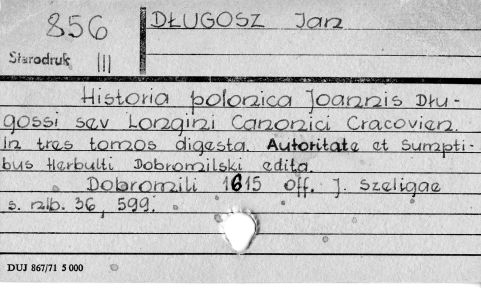 856
DŁUGOSZ Jan
Starodruk III
Historia polonica Joannis Dłu-
gossi sev Longini Canonici Cracovien.
in tres tomos digesta. Autoritate et sumpti-
bus Herbulti Dobromilski edita.
Dobromili 1615 Off. J. Szeligae
s. nlb. 36, 599.
DUJ 867/71 5 000